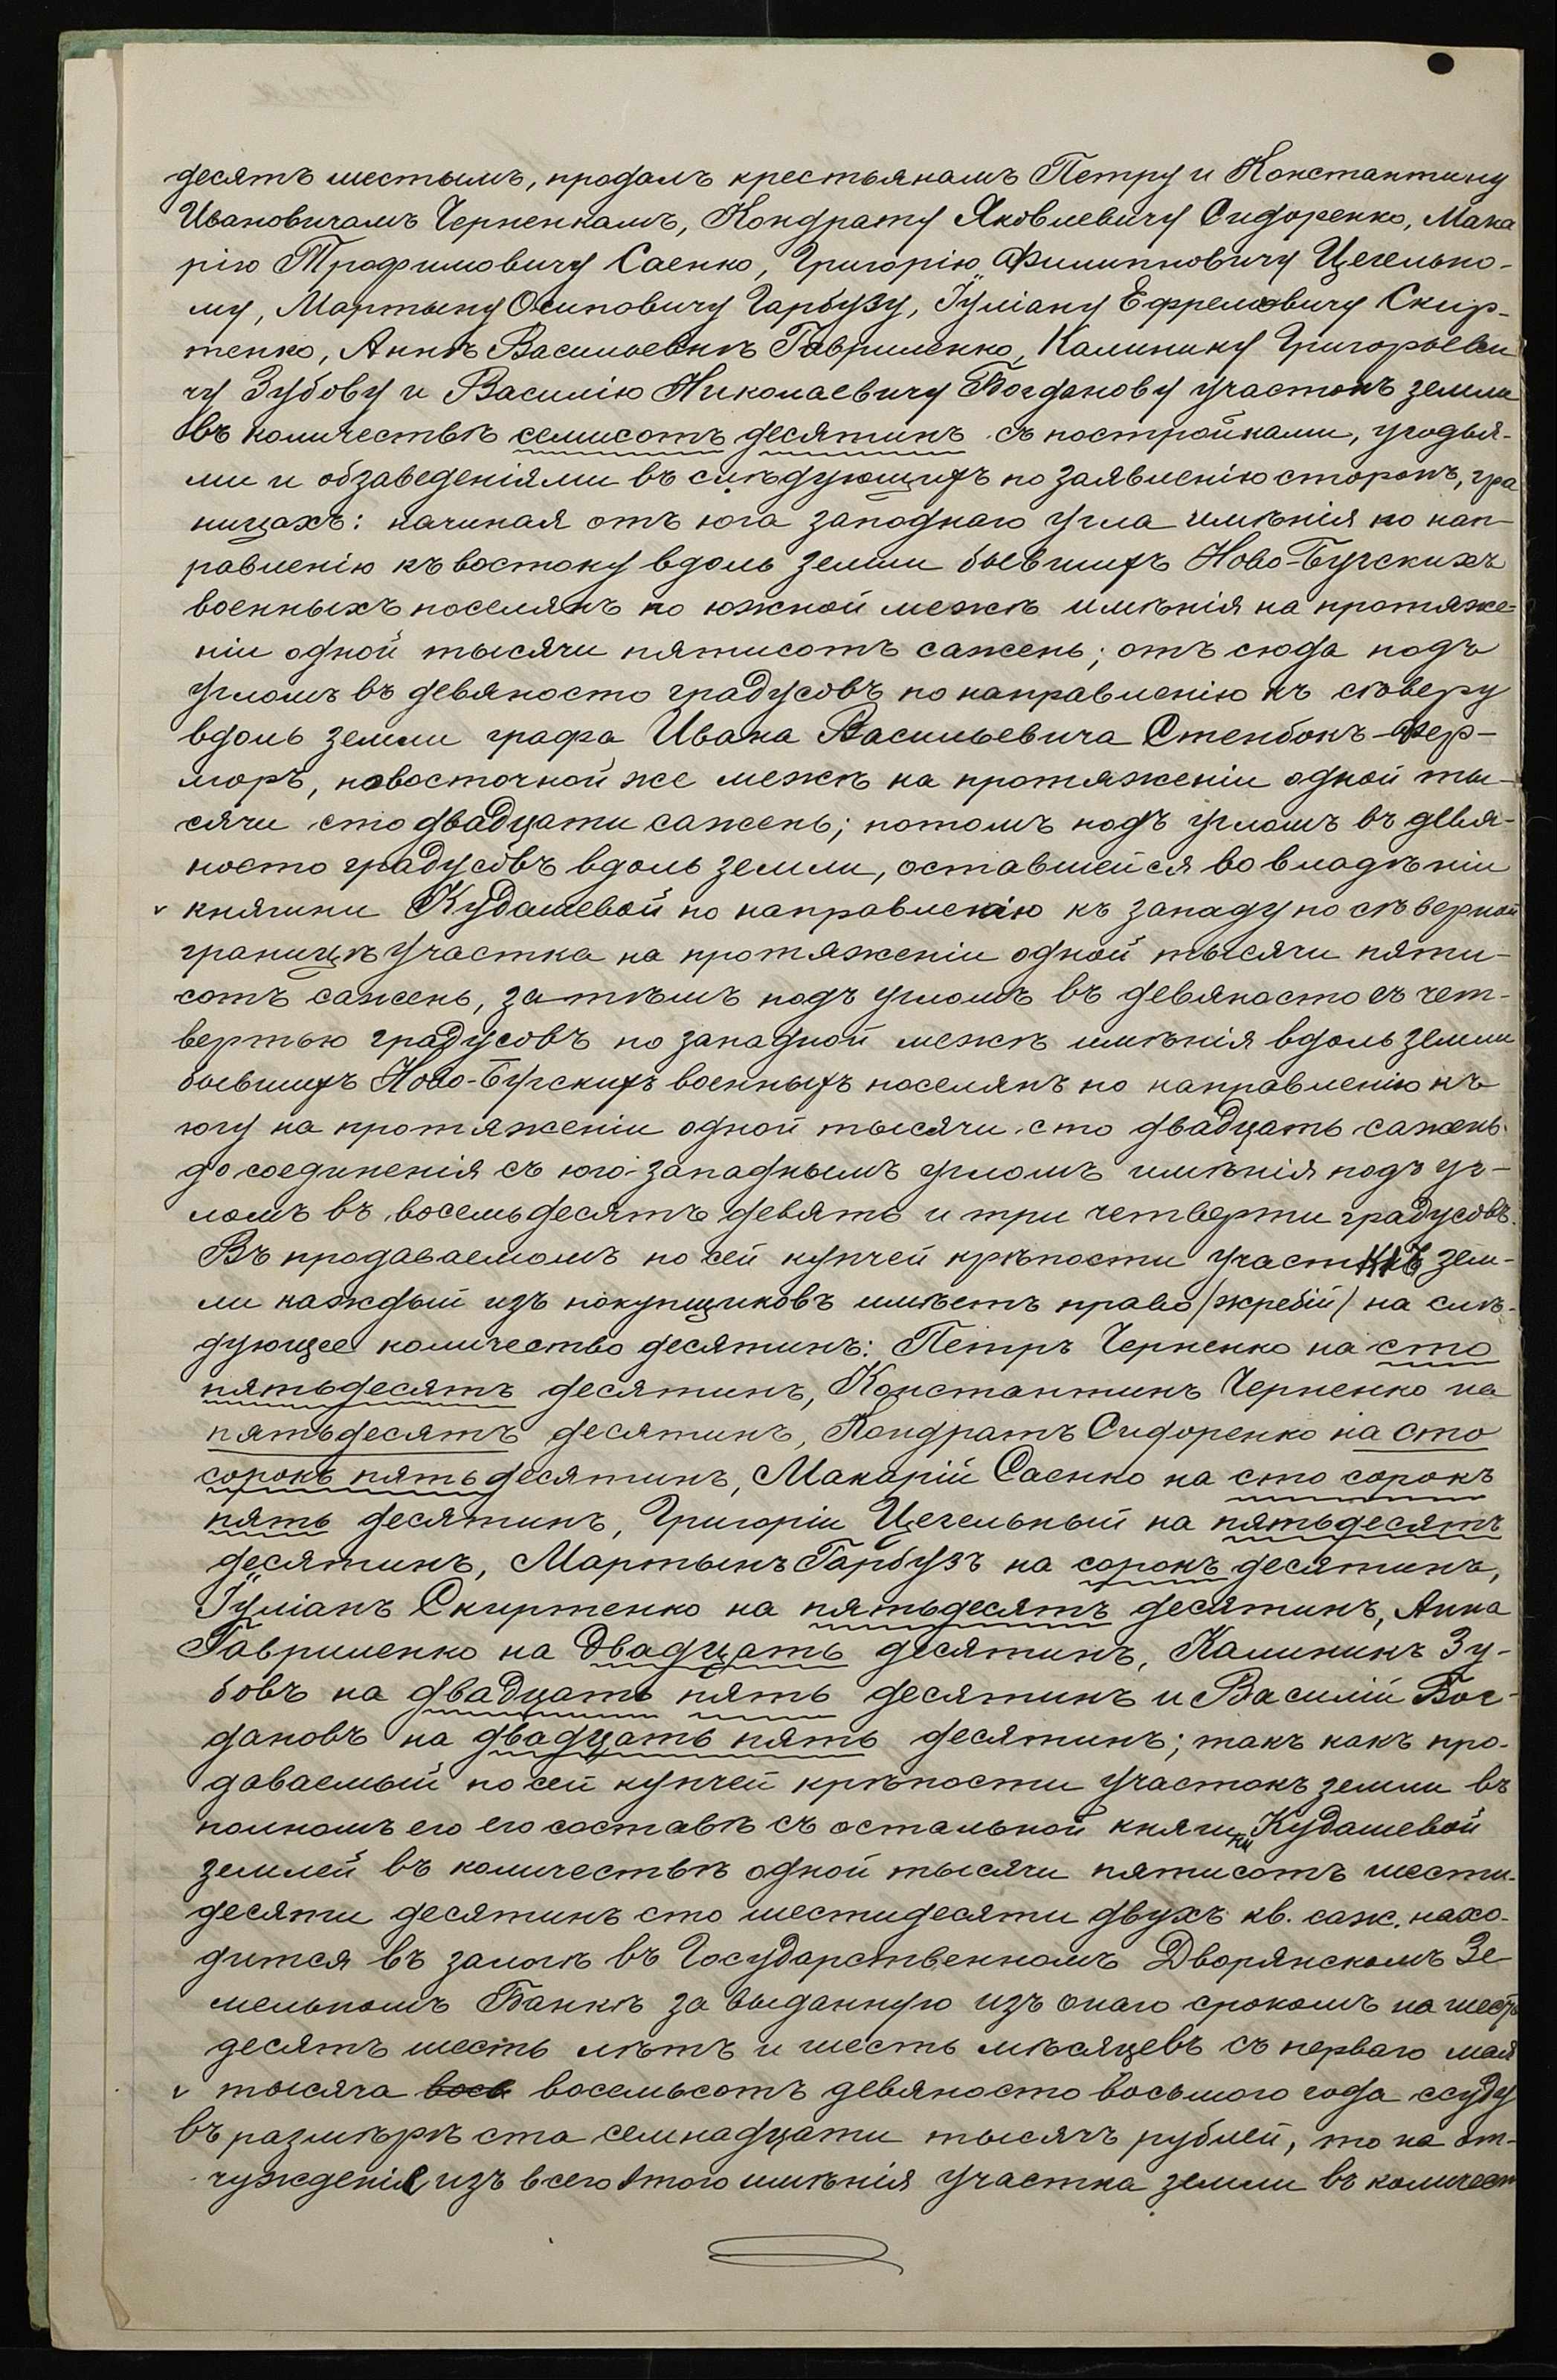 десятъ шестымъ, продалъ крестьянамъ Петру и Константину
Ивановичамъ Черненкамъ, Кондрату Яковлевичу Сидоренко, Мака
рію Трофимовичу Саенко, Григорію Филипповичу Цегельно-
му, Мартыну Осиповичу Гарбузу, Іуліану Ефремовичу Скир-
тенко, Аннѣ Васильевнѣ Гавриленко, Калинику Григорьеви
чу Зубову и Василію Николаевичу Богданову участокъ земли
въ количествѣ семисотъ десятинъ съ постройками, угодья-
ми и обзаведеніями въ слѣдующихъ по заявленію сторонъ, гра
ницахъ: начиная отъ юга западнаго угла имѣнія по нап-
равленію къ востоку вдоль земли бывшихъ Ново-Бугскихъ
военныхъ поселянъ по южной межѣ имѣнія на протяже-
ніи одной тысячи пятисотъ сажень; отъ сюда подъ
угломъ въ девяносто градусовъ по направленію къ сѣверу
вдоль земли графа Ивана Васильевича Стенбокъ-Фер-
моръ, повосточной же межѣ на протяженіи одной ты-
сячи сто двадцати сажень; потомъ подъ угломъ въ девя-
носто градусовъ вдоль земли, оставшейся во владѣніи
v княгини Кудашевой по направленію къ западу по сѣверной
границѣ участка на протяженіи одной тысячи пяти-
сотъ сажень, затѣмъ подъ угломъ въ девяносто съ чет-
вертью градусовъ по западной межѣ имѣнія вдоль земли
бывшихъ Ново-Бугскихъ военныхъ поселянъ по направленію къ
югу на протяженіи одной тысячи сто двадцать сажень
до соединенія съ юго-западнымъ угломъ имѣнія подъ уг-
ломъ въ восемьдесятъ девять и три четверти градусовъ.
Въ продаваемомъ по сей купчей крѣпости участкѣ зем-
ли каждый изъ покупщиковъ имѣетъ право /жребій/ на слѣ-
дующее количество десятинъ: Петръ Черненко на сто
пятьдесятъ десятинъ, Константинъ Черненко на
пятьдесятъ десятинъ, Кондратъ Сидоренко на сто
сорокъ пять десятинъ, Макарій Саенко на сто сорокъ
пять десятинъ, Григоріи Цегельный на пятьдесятъ
десятинъ, Мартынъ Гарбузъ на сорокъ десятинъ,
Іуліанъ Скиртенко на пятьдесятъ десятинъ, Анна
Гавриленко на двадцать десятинъ, Калиникъ Зу-
бовъ на двадцать пять десятинъ и Василій Бог-
дановъ на двадцать пять десятинъ; такъ какъ про-
даваемый по сей купчей крѣпости участокъ земли въ
полномъ его его составѣ съ остальной княгини Кудашевой
землей въ количествѣ одной тысячи пятисотъ шести-
десяти десятинъ сто шестидесяти двухъ кв. саж. нахо-
дится въ залогѣ въ Государственномъ Дворянскомъ Зе
мельномъ Банкѣ за выданную изъ онаго срокомъ на шесть
десятъ шесть лѣтъ и шесть мѣсяцевъ съ перваго мая
v тысяча вось восемьсотъ девяносто восьмого года ссуду
въ размѣрѣ ста семнадцати тысячъ рублей, то на от-
чужденіе изъ всего этого имѣнія участка земли въ количест